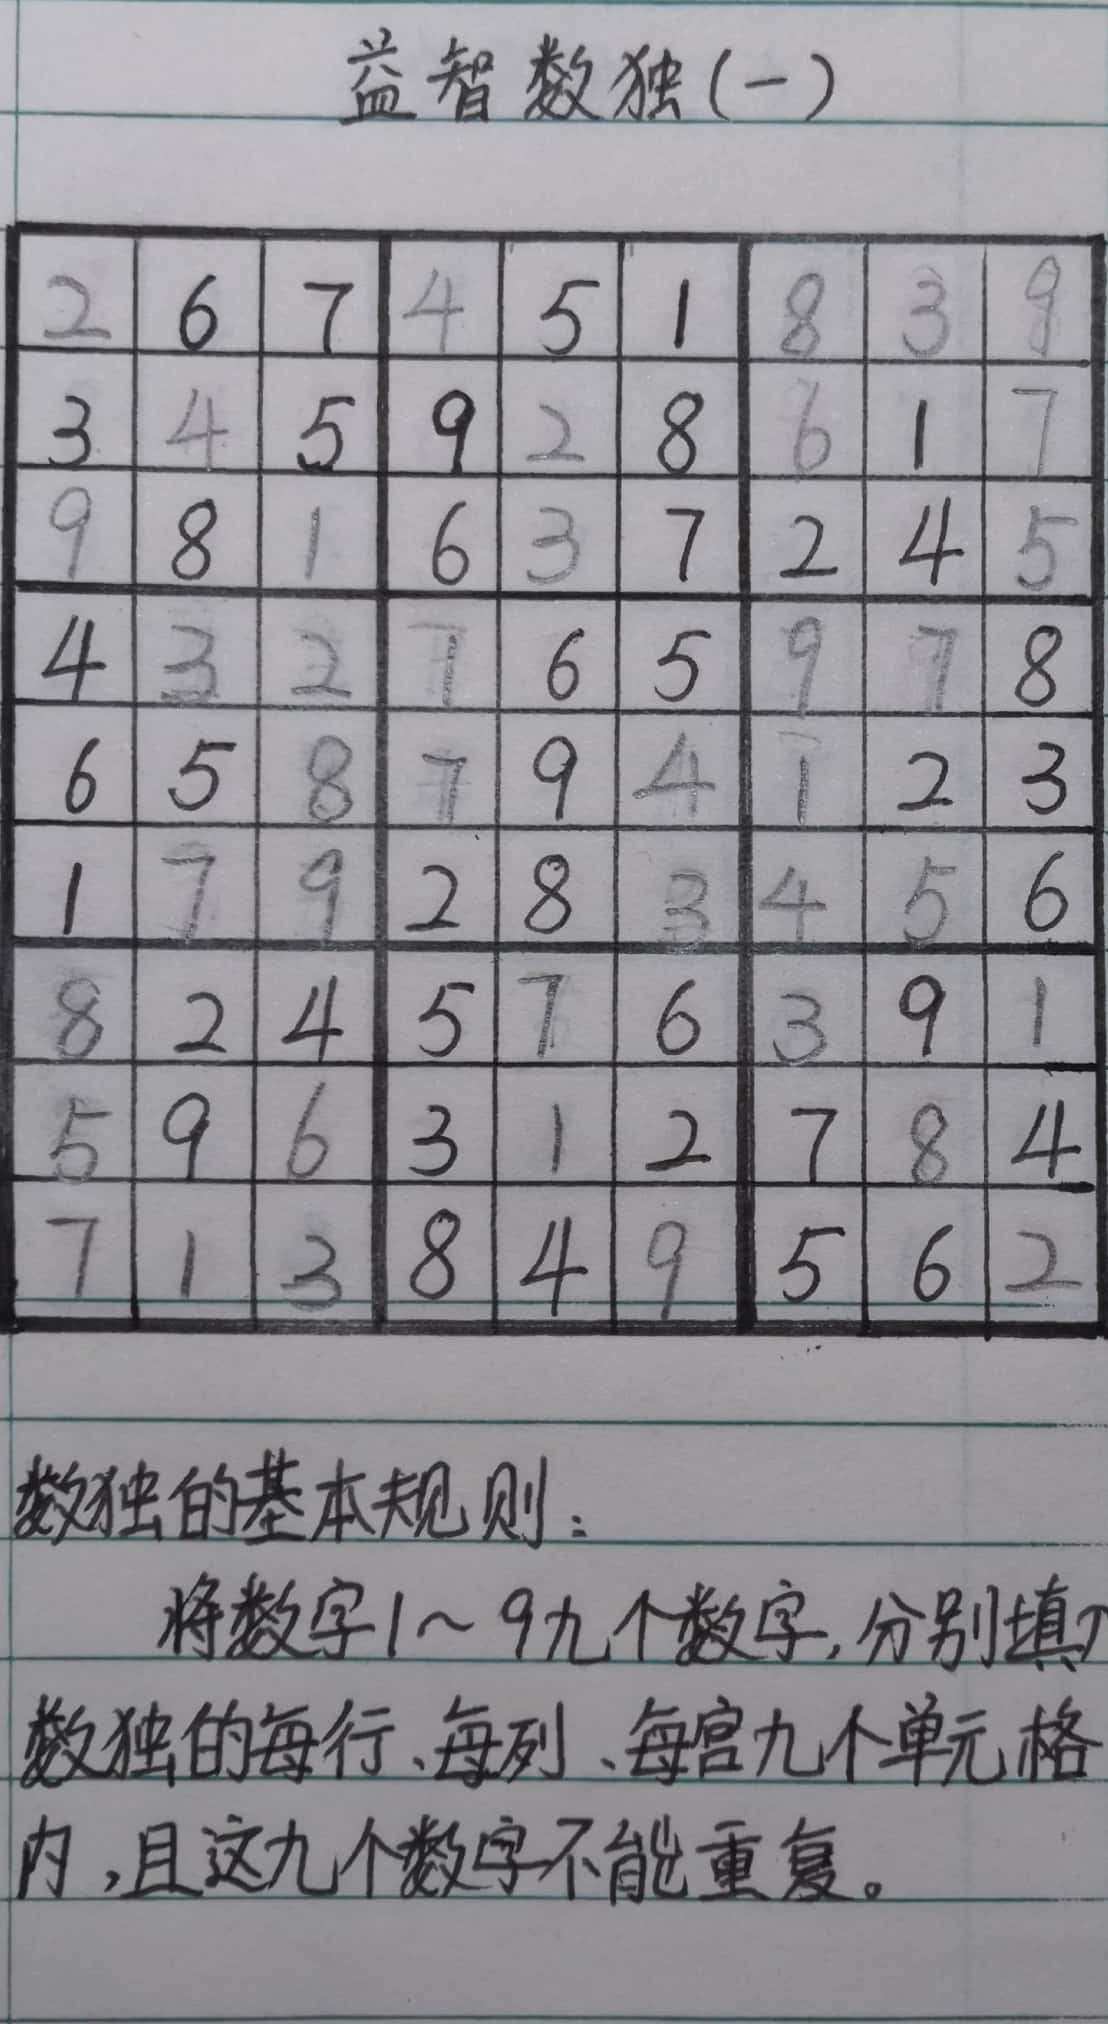 益智数独(一)
2 6 7 4 5 1 8 3 9
3 4 5 9 2 8 6 1 7
9 8 1 6 3 7 2 4 5
4 3 2 1 6 5 9 7 8
6 5 8 7 9 4 1 2 3
1 7 9 2 8 3 4 5 6
8 2 4 5 7 6 3 9 1
5 9 6 3 1 2 7 8 4
7 1 3 8 4 9 5 6 2
数独的基本规则:
将数字1~9九个数字,分别填入
数独的每行、每列、每宫九个单元格
内,且这九个数字不能重复。